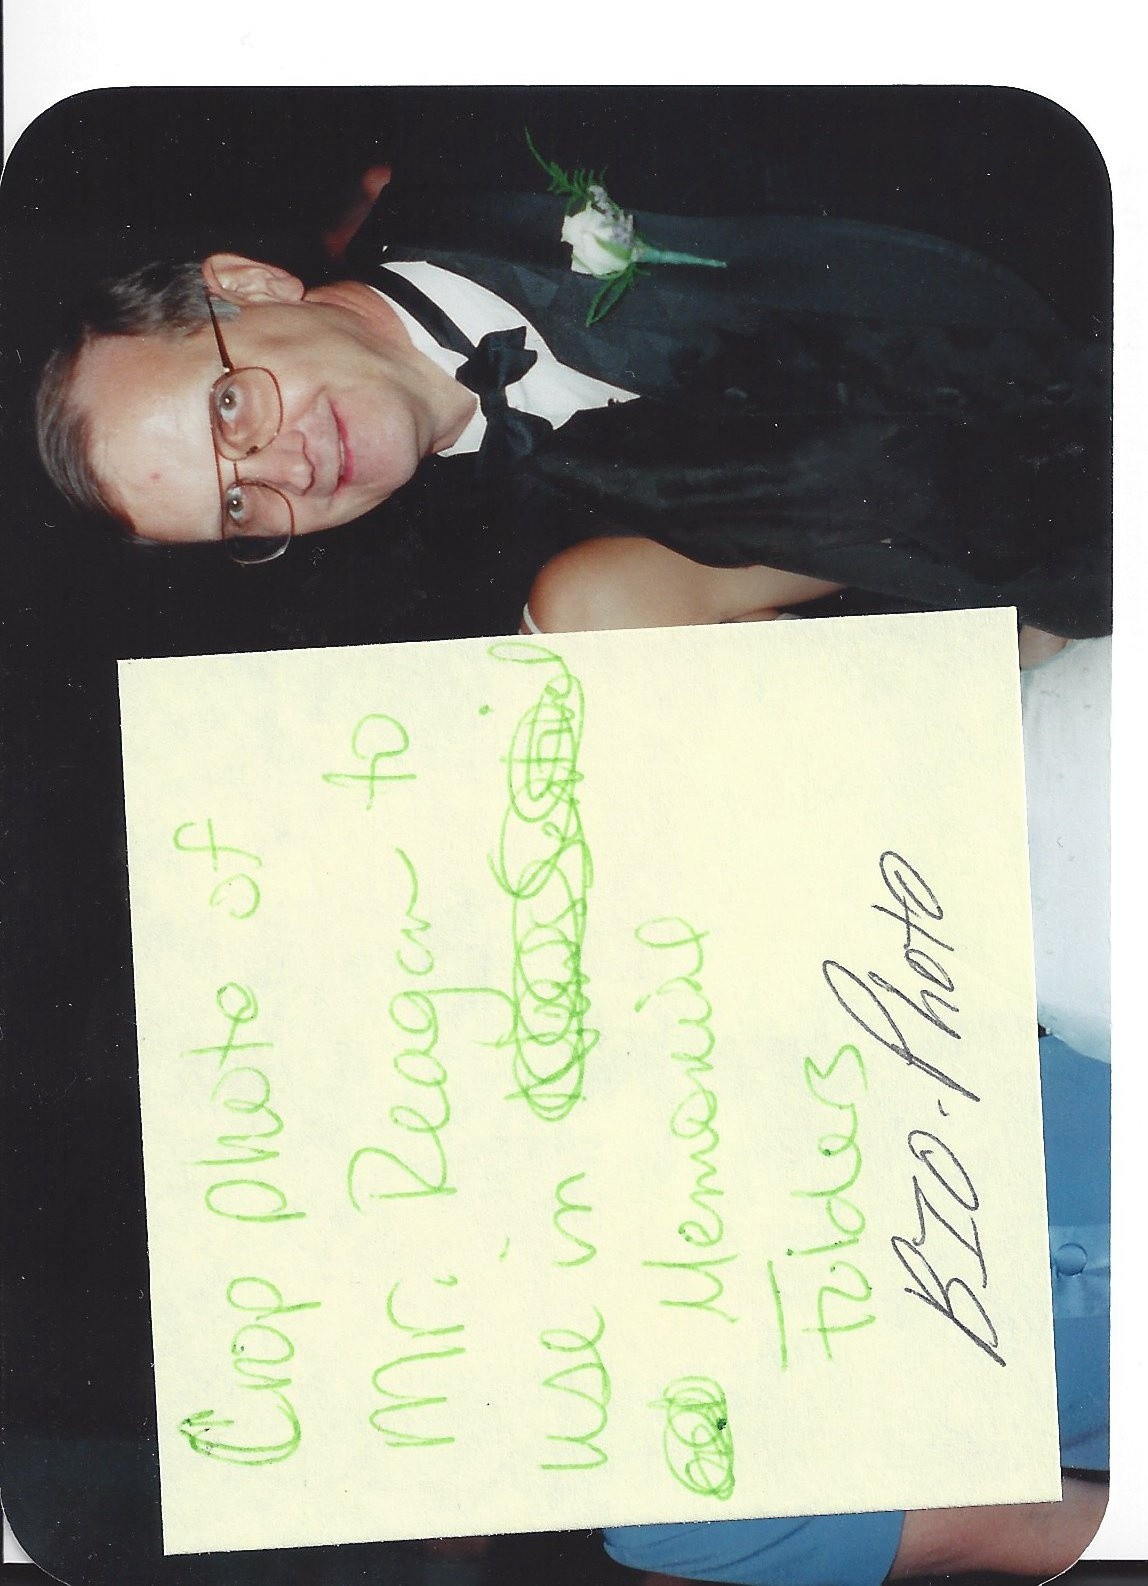 Crop photo of
Mr. Reagan to
use in
Memorial
Folders
BIO-Photo